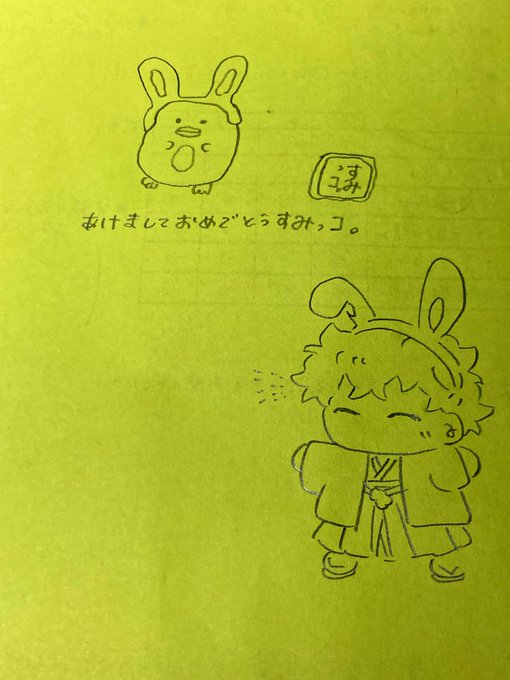 っす
コみ
。
あけましておめでとうすみっコ。